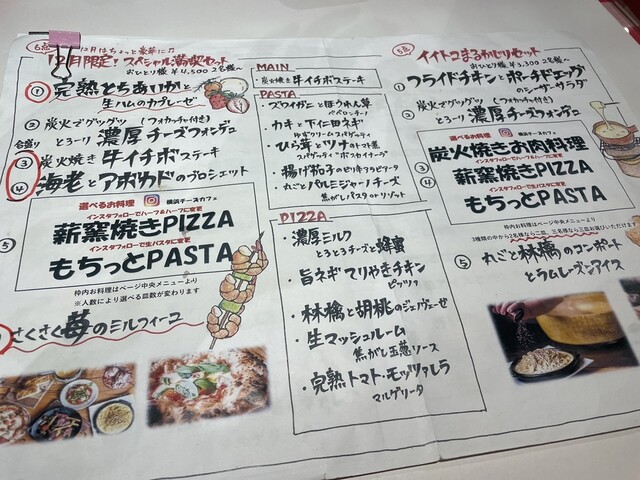 6品
12月はちょっと豪華に♫
12月限定! スペシャル満喫セット
おひとり様 ¥4,500 2名様〜
① 完熟とちあいかと
生ハムのカプレーゼ
② 炭火でグツグツ (フォカッチャ付き)
とろーり 濃厚チーズフォンデュ
③ 炭火焼き 牛イチボステーキ
④ 海老とアボカドのブロシェット
⑤
選べるお料理
横浜チーズカフェ
インスタフォローでハーフ&ハーフに変更
薪窯焼きPIZZA
インスタフォローで生パスタに変更
もちっとPASTA
枠内お料理はページ中央メニューより
※人数により選べる皿数が変わります
さくさく苺のミルフィーユ
MAIN
・炭火焼き 牛イチボステーキ
PASTA
・ズワイガニとほうれん草
ペペロンチーノ
・カキと下仁田ネギ
ゆずクリームスパゲッティ
・ひら茸とツナのトマト煮
スパゲッティ"ボスカイオーラ"
・揚げ茄子のピリ辛アラビアータ
・丸ごとパルミジャーノチーズ
焦がしパスタorリゾット
PIZZA
・濃厚ミルク
とろとろチーズと蜂蜜
・旨ネギマリやきチキン
ピッツァ
・林檎と胡桃のジェノヴェーゼ
・生マッシュルーム
焦がし玉葱ソース
・完熟トマト・モッツァレラ
マルゲリータ
5品
イイトコまるかじりセット
おひとり様 ¥3,500 2名様〜
① フライドチキンとポーチドエッグ
のシーザーサラダ
② 炭火でグツグツ (フォカッチャ付き)
とろーり 濃厚チーズフォンデュ
③
④
選べるお料理
横浜チーズカフェ
炭火焼きお肉料理
インスタフォローでハーフ&ハーフに変更
薪窯焼きPIZZA
インスタフォローで生パスタに変更
もちっとPASTA
枠内お料理はページ中央メニューより
3種類の中から2名様なら二皿、三名様なら三皿お選びいただけます
⑤ 丸ごと林檎のコンポート
とラムレーズンアイス